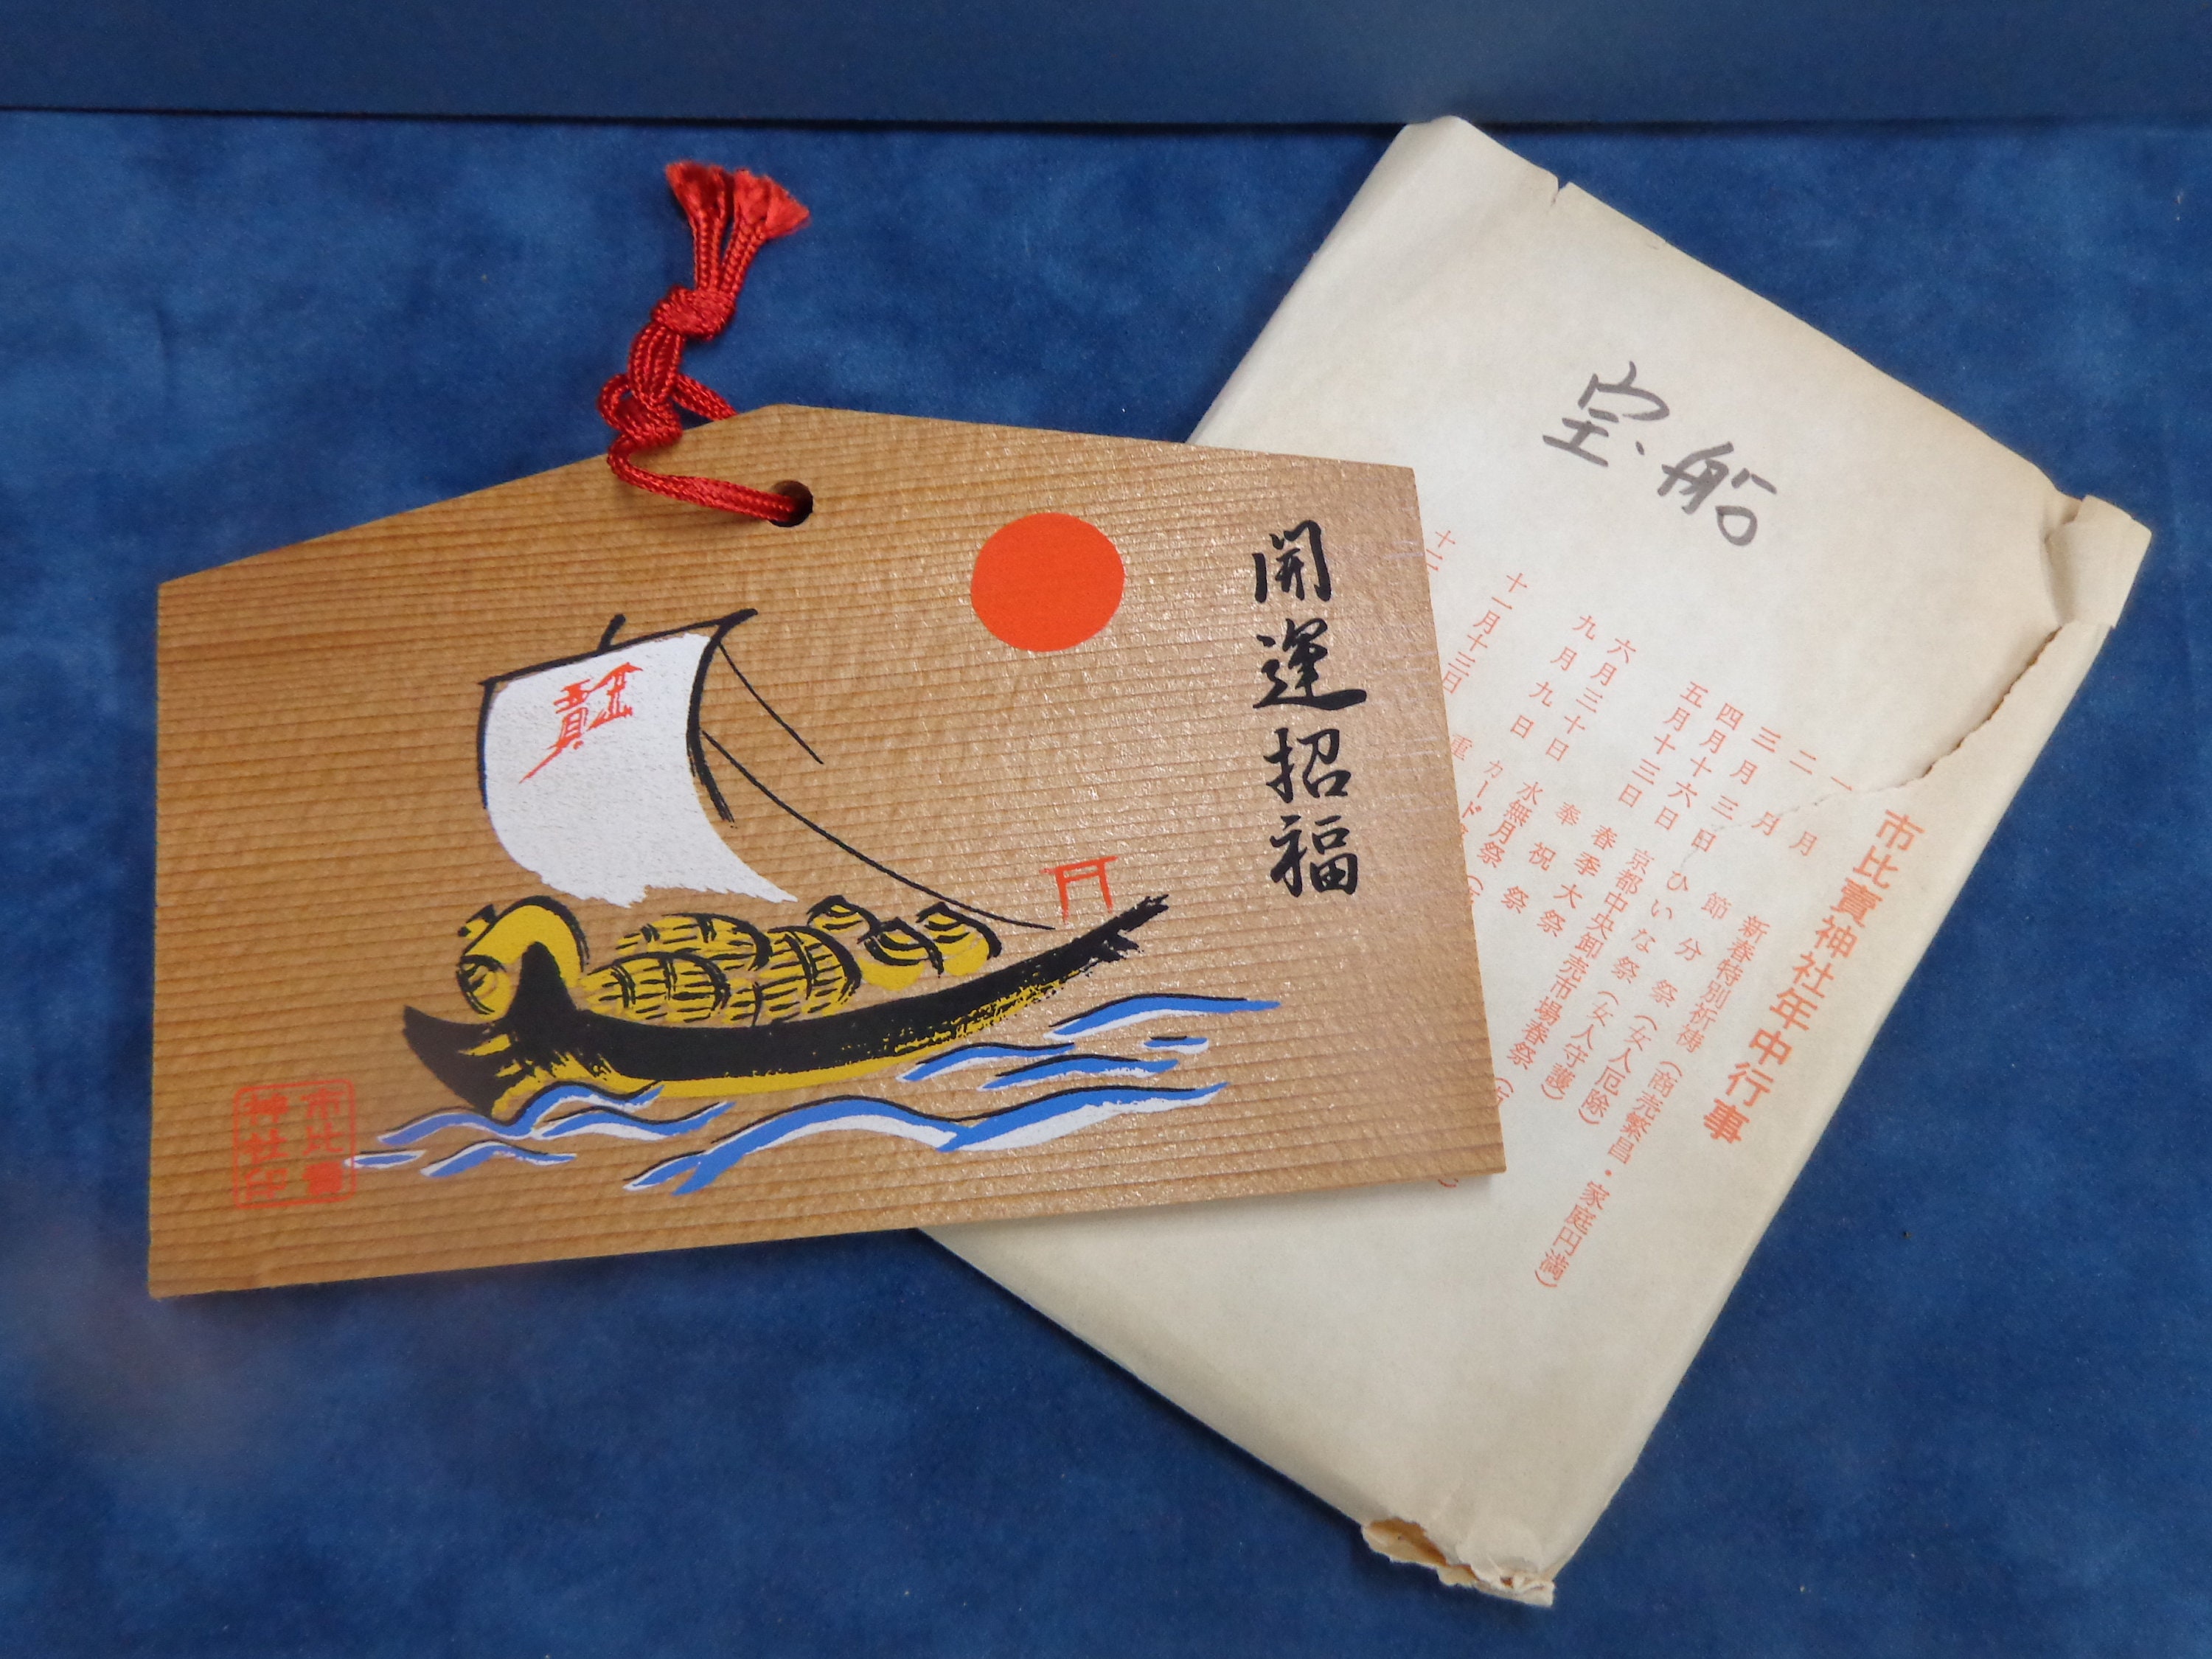 開運招福
寳
市比賣
神社印
宝船
市比賣神社年中行事
一月 新春特別祈祷(商売繁昌・家庭円満)
二月 節分祭(女人厄除)
三月三日 ひいな祭(女人守護)
四月十六日 京都中央卸売市場春祭
五月十三日 春季大祭
六月三十日 水無月祭
九月九日
十一月十三日 カード
十二
奉祝祭